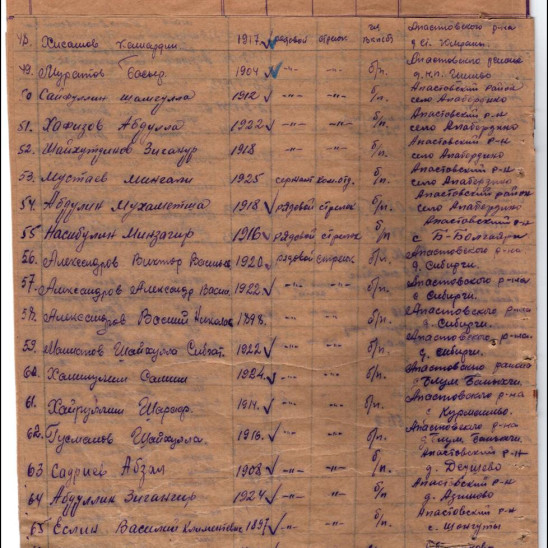 48. Хисамов 1917 рядовой стрелок чл ВКП(б) Апастовского р-на
49. Муратов 1904 -"- -"- б/п. Апастовского района
50 Сайфуллин Шамсулла 1912 -"- -"- б/п. Апастовский район село Апабердино
51. Хафизов Абдулла 1922 -"- -"- б/п. Апастовский р-н село Апабердино
52. Шайхутдинов Зиганур 1918 -"- -"- б/п. Апастовский р-н село Апабердино
53. Мустаев Мингали 1925 сержант ком.отд. б/п. Апастовский р-н село Апабердино
54. Абдулин Мухаметша 1918 рядовой стрелок б/п. Апастовский район село Апабердино
55. Насибулин Минзагир 1916 рядовой стрелок б/п. Апастовский р-н с Б-Болгаяры
56. Александров Виктор 1920 рядовой стрелок б/п. Апастовского р-на д. Сибирчи.
57. Александров Александр Васил. 1922 -"- -"- б/п. Апастовского р-на с Сибирчи.
58. Александров Василий Николае 1898. -"- б/п. Апастовского р-на д. Сибирчи.
59. Шайхулла 1922 -"- б/п. Апастовского р-на д. Сибирчи.
60. 1924. -"- б/п. Апастовского района
61. Хайруллин 1914. -"- б/п. Апастовского р-на
62. Гусманов Шайхулла. 1916. -"- б/п. Апастовского р-на
63. Садриев Абзал 1908 -"- -"- б/п. Апастовский р-н д. Деушево
64 Абдуллин Зигангир 1924 -"- -"- б/п Апастовский р-н д. Азимево
65 Еслин Василий Климентьев 1897 -"- -"- б/п. Апастовский р-н с. Шонгуты